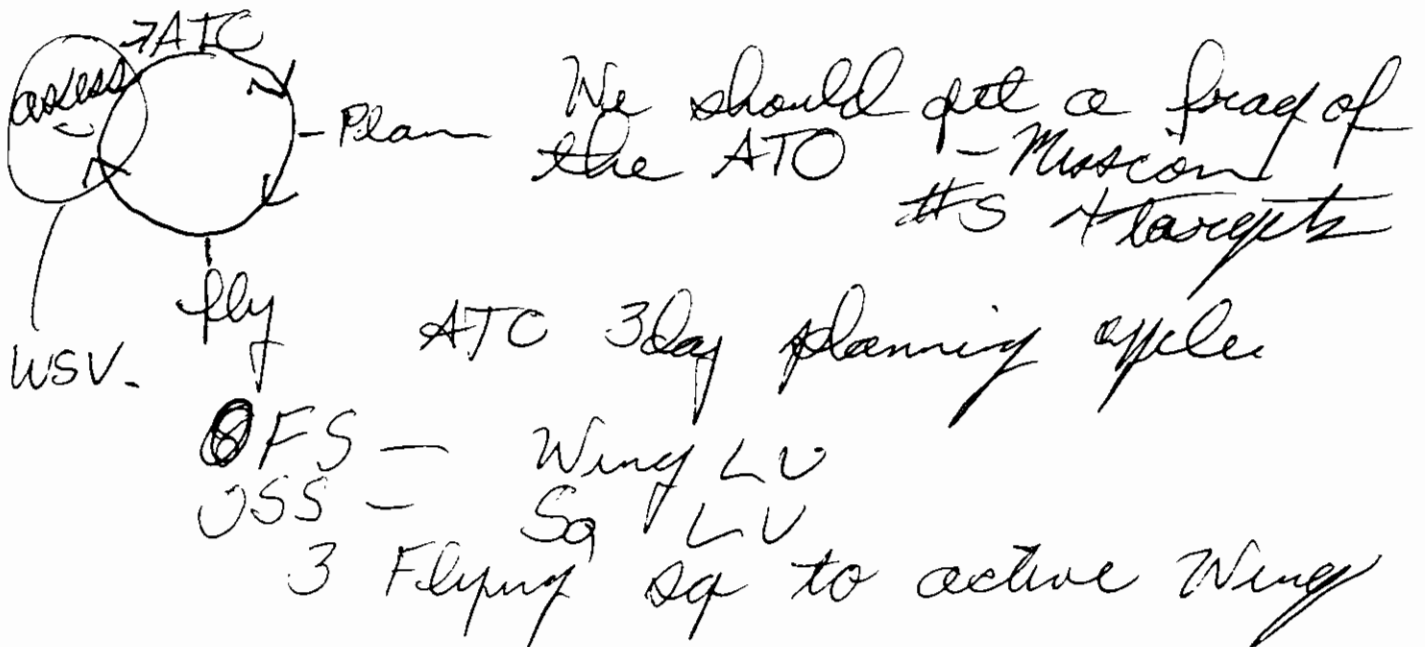 ATO
assess
- Plan
We should get a frag of
the ATO - Misscom
#s + targets
fly
WSV.
ATO 3day planning cycle
FS - Wing LV
OSS - Sq LV
3 Flying sq to active Wing